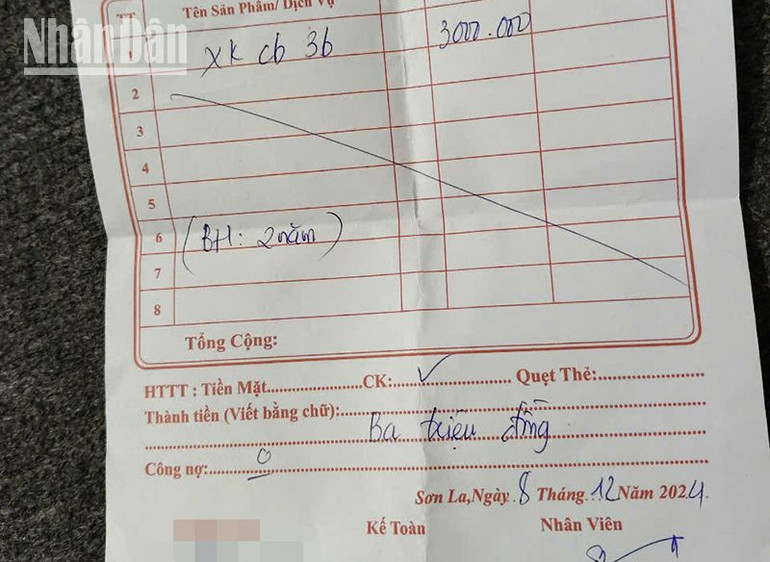 NhânDân
TT Tên Sản Phẩm/ Dịch Vụ
1 XK cb 3b 3000.000
2
3
4
5
6 (BH: 2 năm)
7
8
Tổng Cộng:
HTTT : Tiền Mặt....................CK:........................ Quẹt Thẻ:......................
Thành tiền (Viết bằng chữ):........................................
Ba triệu đồng
Công nợ:.......0........................................
Sơn La,Ngày 8 Tháng 12 Năm 2024
Kế Toàn Nhân Viên